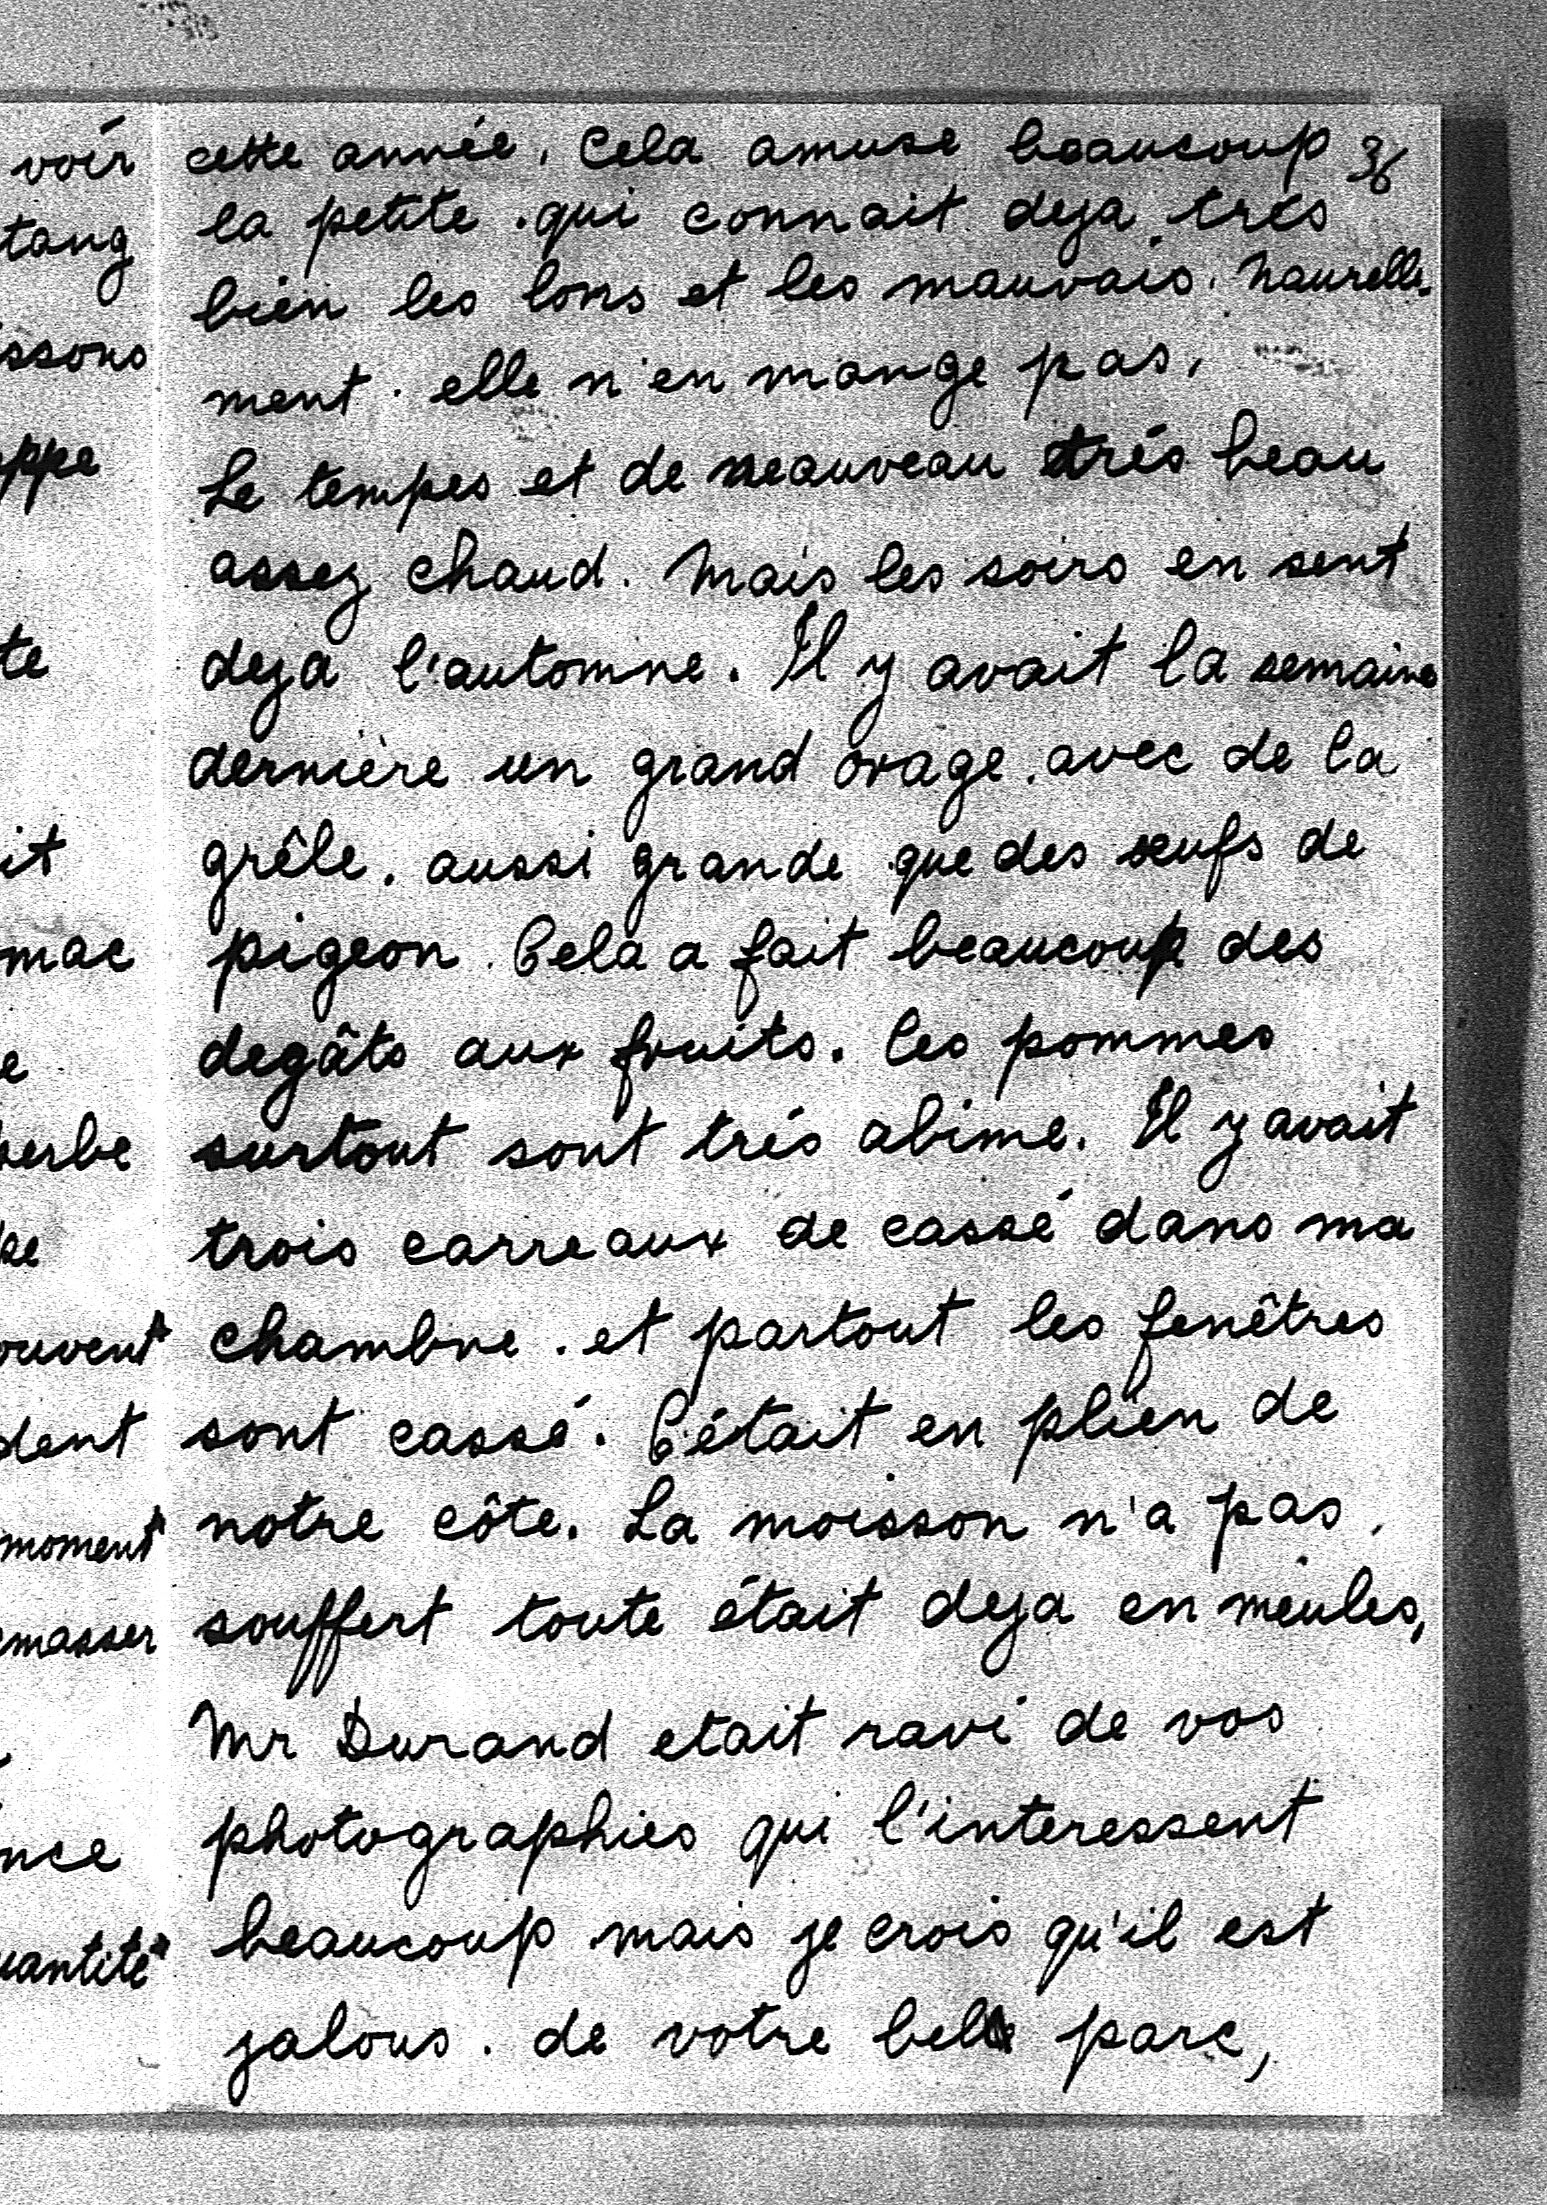 voir
tang
ssons
ppe
te
it
mac
e
herbe
se
ouvent
dent
moment
emasser
nce
uantité
36
cette année, Cela amuse beaucoup
la petite. qui connait deja très
bien les bons et les mauvais. Naurelle-
ment. elle n'en mange pas,
Le tempes et de neauveau trés beau
assez chaud. Mais les soirs en sent
deja l'automne. Il y avait la semaine
dernière un grand orage. avec de la
grêle. aussi grande que des œufs de
pigeon. Cela a fait beaucoup des
degâts aux fruits. les pommes
surtout sont trés abime. Il y avait
trois carreaux de cassé dans ma
chambre. et partout les fenêtres
sont cassé. C'était en plien de
notre côte. La moisson n'a pas.
souffert toute était deja en meules,
Mr Durand etait ravi de vos
photographies qui l'interessent
beaucoup mais je crois qu'il est
jalous. de votre belle parc,